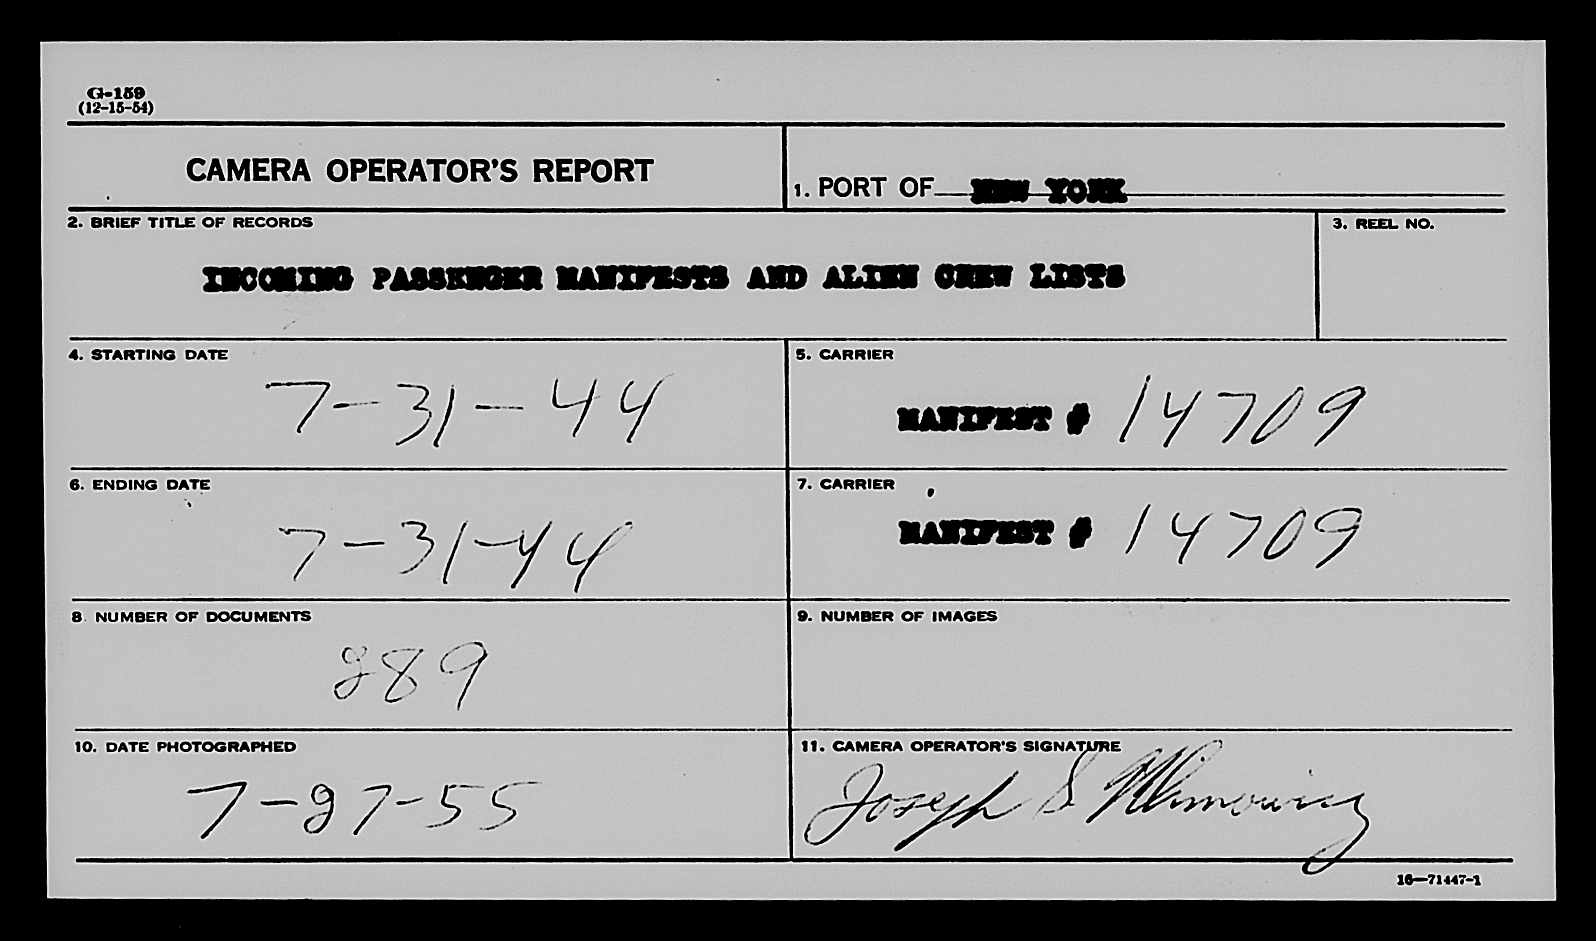 G-159
(12-15-54)
CAMERA OPERATOR'S REPORT
1. PORT OF NEW YORK
2. BRIEF TITLE OF RECORDS
3. REEL NO.
INCOMING PASSENGER MANIFESTS AND ALIEN CREW LISTS
4. STARTING DATE
7-31-44
5. CARRIER
MANIFEST # 14709
6. ENDING DATE
7-31-44
7. CARRIER
MANIFEST # 14709
8. NUMBER OF DOCUMENTS
289
9. NUMBER OF IMAGES
10. DATE PHOTOGRAPHED
7-27-55
11. CAMERA OPERATOR'S SIGNATURE
Joseph S
16—71447-1